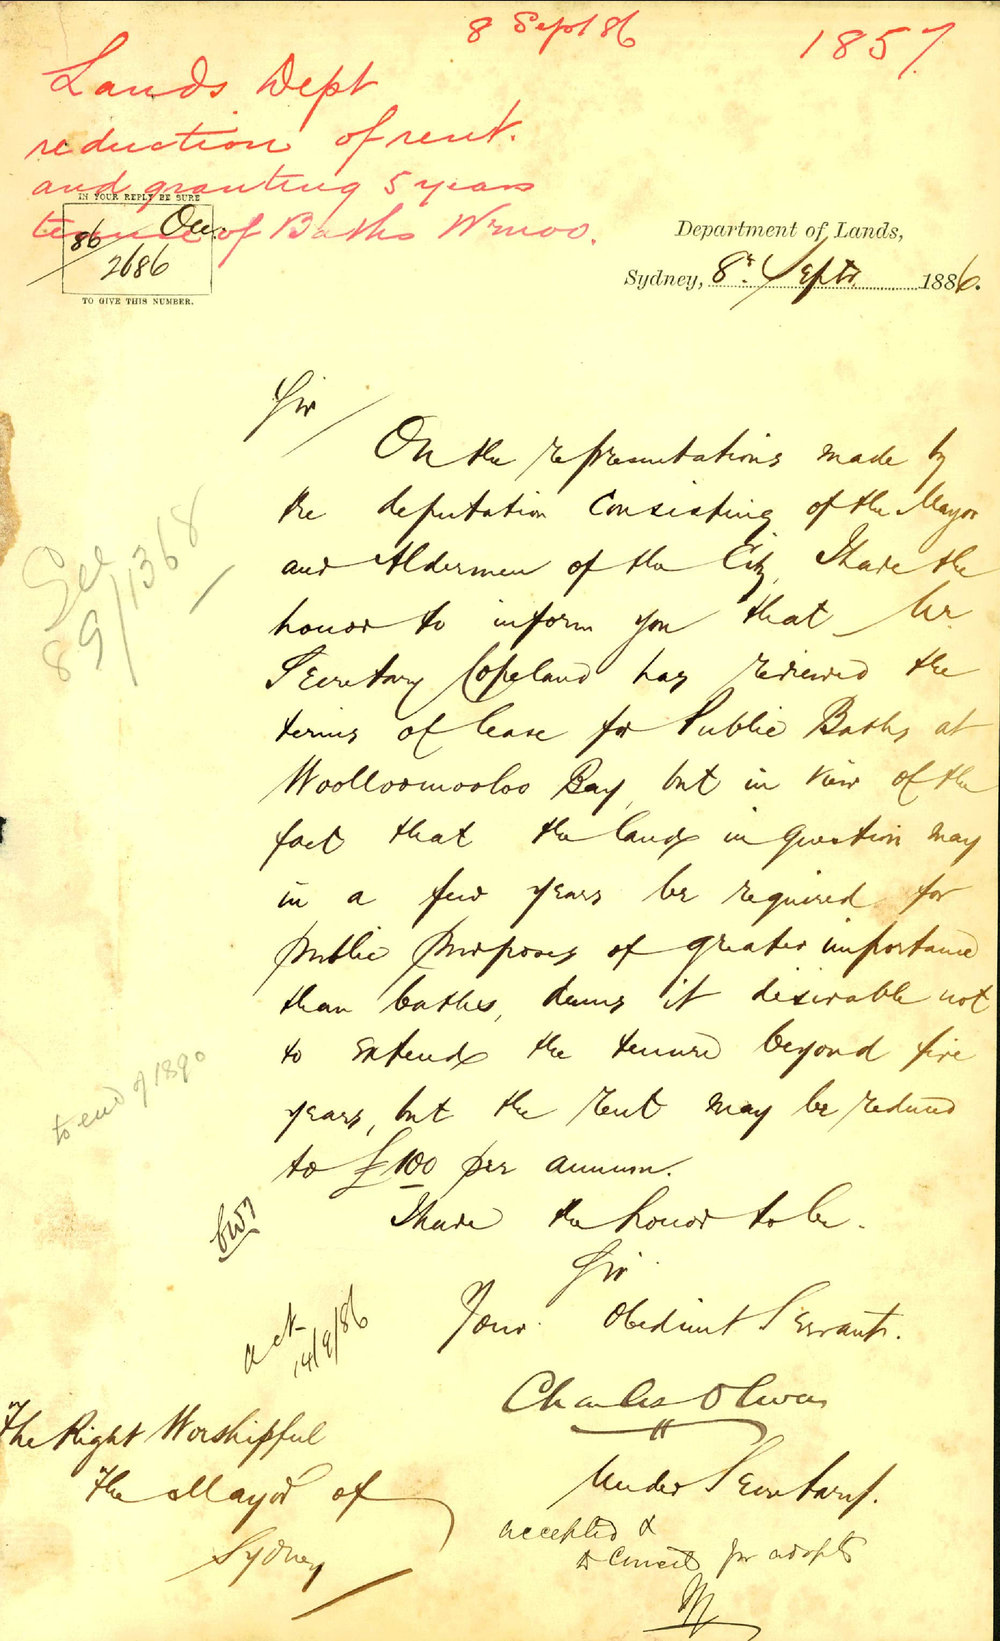 8 Sept 86
1857.
Lands Dept
reduction of rent.
and granting 5 years
tenure of Baths Wmoo.
IN YOUR REPLY BE SURE
86 Occ.
2686
TO GIVE THIS NUMBER.
Department of Lands,
Sydney, 8th Septr 1886.
Sir
On the representations made by
the deputation consisting of the Mayor
and Aldermen of the City, I have the
honor to inform you that Mr.
Secretary Copeland has reviewed the
terms of lease for Public Baths at
Woolloomooloo Bay, but in view of the
fact that the land in question may
in a few years be required for
public purposes of greater importance
than baths, deems it desirable not
to extend the tenure beyond five
years, but the rent may be reduced
to £100 per annum.
I have the honor to be.
Sir
Your obedient Servant.
Charles Oliver
Under Secretary.
See
89/1368
to end of 1890
14/9/86
The Right Worshipful
The Mayor of
Sydney
accepted &
to Comcts for adoptn